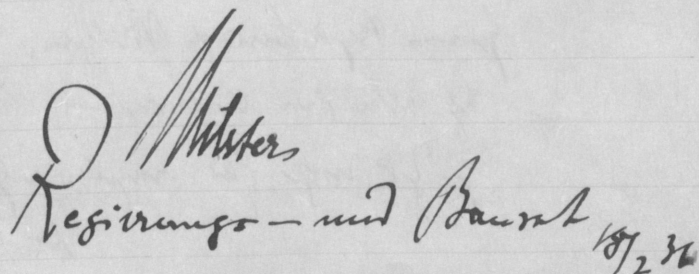 Milsters
Regierungs- und Baurat 18/2 31